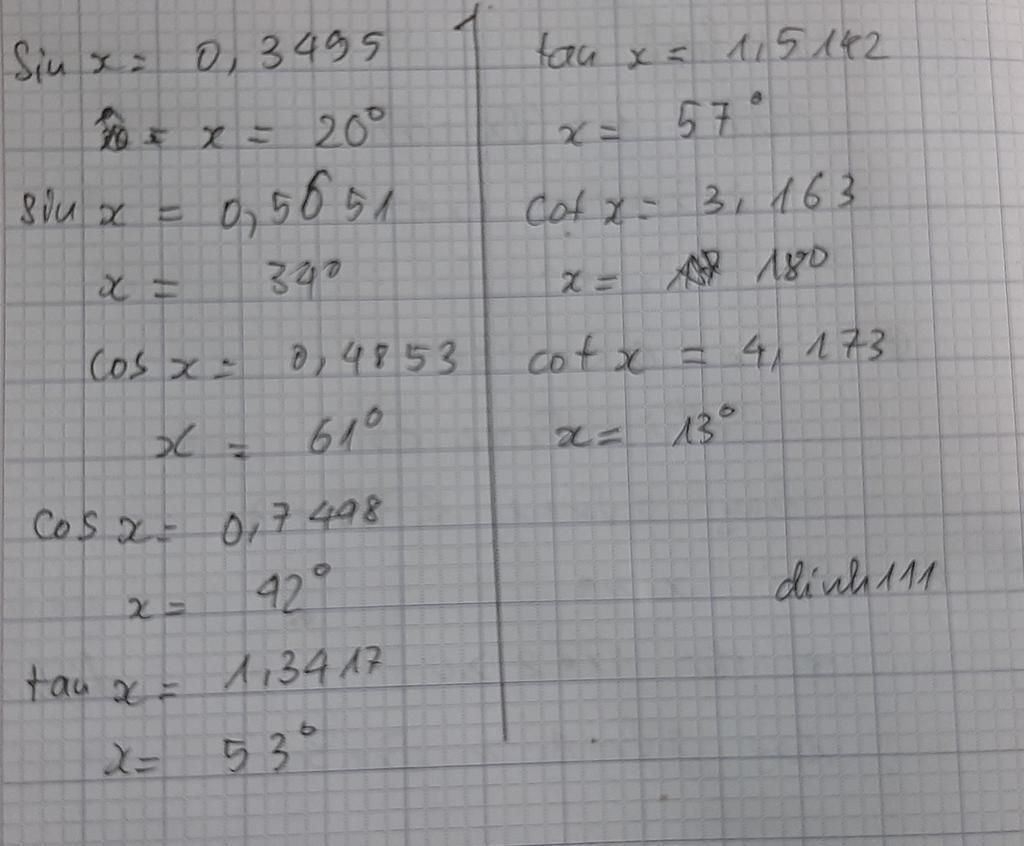 sin x = 0,3495
x = 20°
sin x = 0,5651
x = 34°
cos x = 0,4853
x = 61°
cos x = 0,7498
x = 42°
tan x = 1,3417
x = 53°
tan x = 1,5142
x = 57°
cot x = 3,163
x = 18°
cot x = 4,173
x = 13°
dinh111